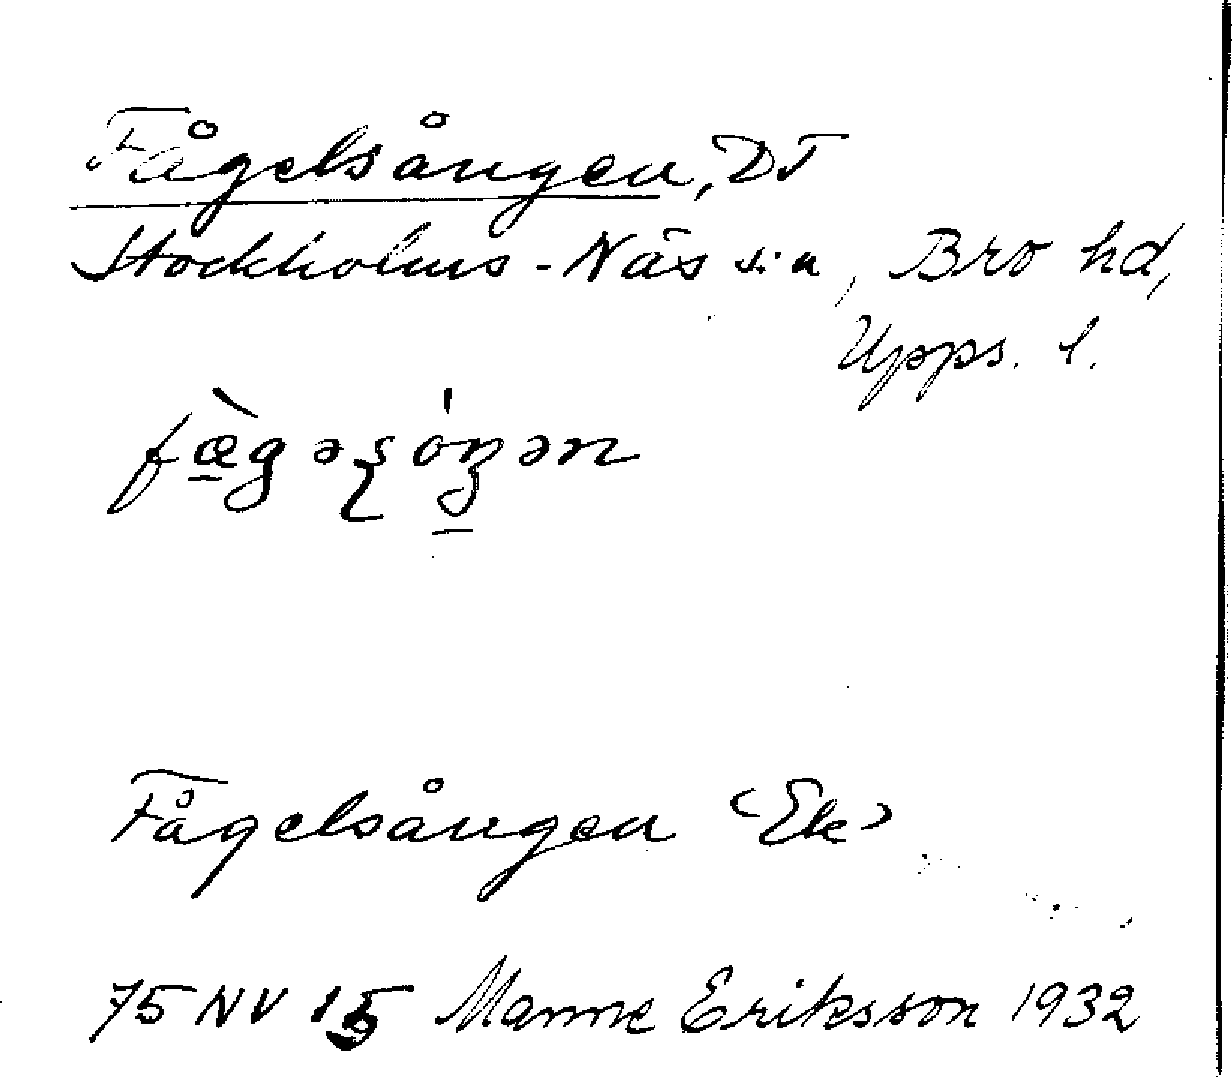 Fågelsången, DT
Stockholms-Näs sn, Bro hd,
Upps. l.
Fågelsången (Ek)
75 NV 15 Manne Eriksson 1932